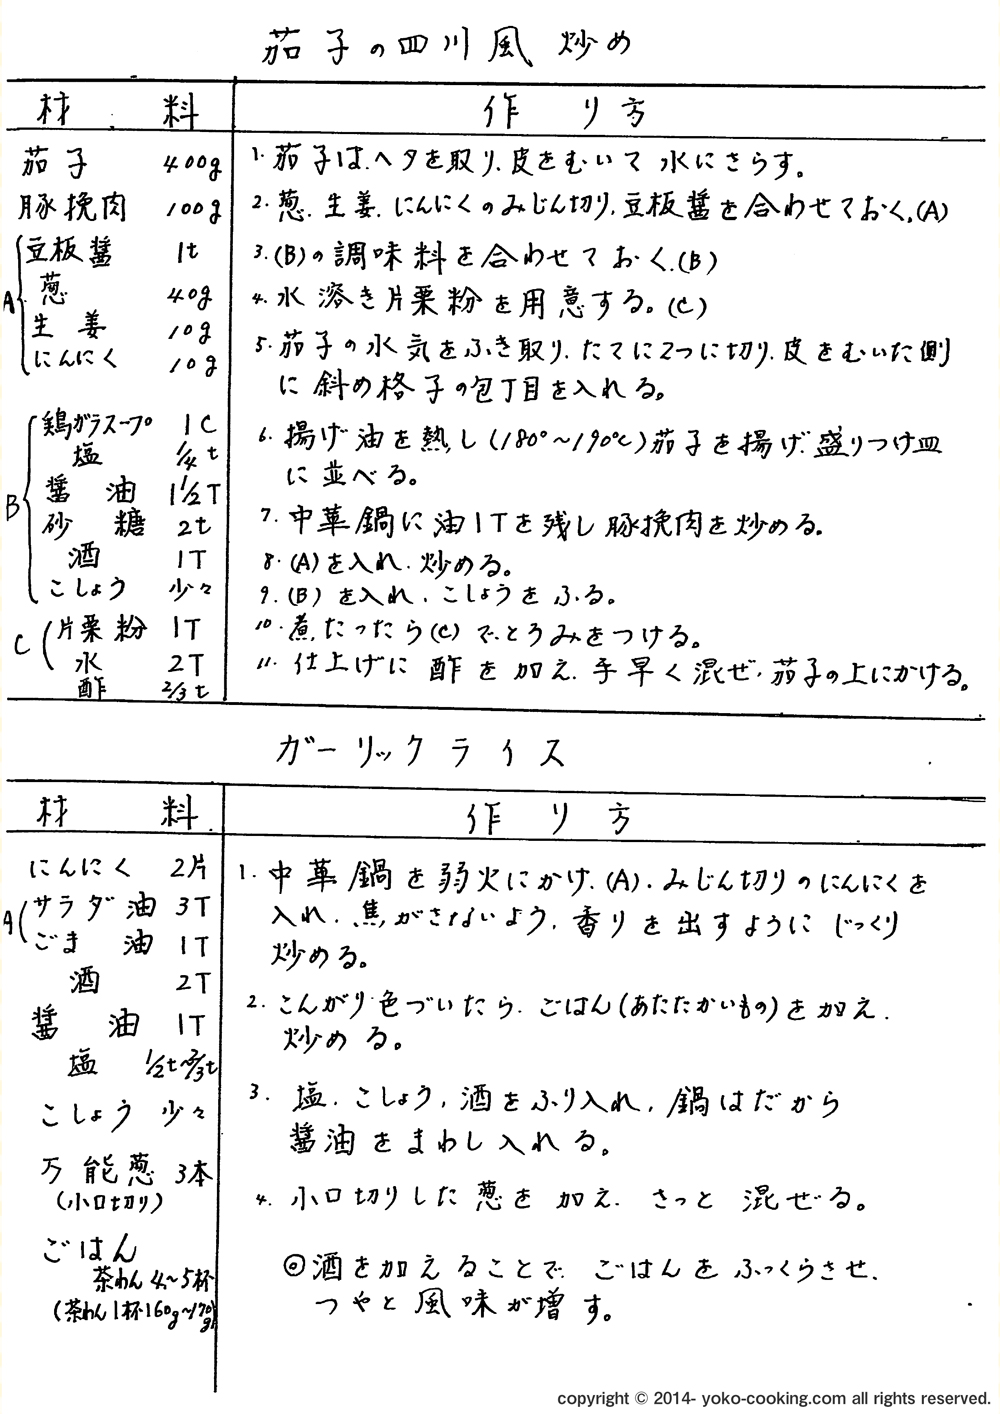 茄子の四川風炒め
材料
作り方
茄子 400g
豚挽肉 100g
A
豆板醤 1t
葱 40g
生姜 10g
にんにく 10g
B
鶏ガラスープ 1C
塩 1/4t
醤油 1 1/2T
砂糖 2t
酒 1T
こしょう 少々
C
片栗粉 1T
水 2T
酢 2/3t
1. 茄子は、ヘタを取り、皮をむいて水にさらす。
2. 葱、生姜、にんにくのみじん切り、豆板醤を合わせておく。(A)
3. (B)の調味料を合わせておく。(B)
4. 水溶き片栗粉を用意する。(C)
5. 茄子の水気をふき取り、たてに2つに切り、皮をむいた側
に斜め格子の包丁目を入れる。
6. 揚げ油を熱し(180°〜190℃)茄子を揚げ、盛りつけ皿
に並べる。
7. 中華鍋に油1Tを残し豚挽肉を炒める。
8. (A)を入れ、炒める。
9. (B)を入れ、こしょうをふる。
10. 煮たったら(C)で、とろみをつける。
11. 仕上げに酢を加え、手早く混ぜ、茄子の上にかける。
ガーリックライス
材料
作り方
にんにく 2片
A
サラダ油 3T
ごま油 1T
酒 2T
醤油 1T
塩 1/2t〜2/3t
こしょう 少々
万能葱 3本
(小口切り)
ごはん
茶わん4〜5杯
(茶わん1杯160g〜170g)
1. 中華鍋を弱火にかけ、(A)、みじん切りのにんにくを
入れ、焦がさないよう、香りを出すようにじっくり
炒める。
2. こんがり色づいたら、ごはん(あたたかいもの)を加え、
炒める。
3. 塩、こしょう、酒をふり入れ、鍋はだから
醤油をまわし入れる。
4. 小口切りした葱を加え、さっと混ぜる。
◎酒を加えることで、ごはんをふっくらさせ、
つやと風味が増す。
copyright © 2014- yoko-cooking.com all rights reserved.